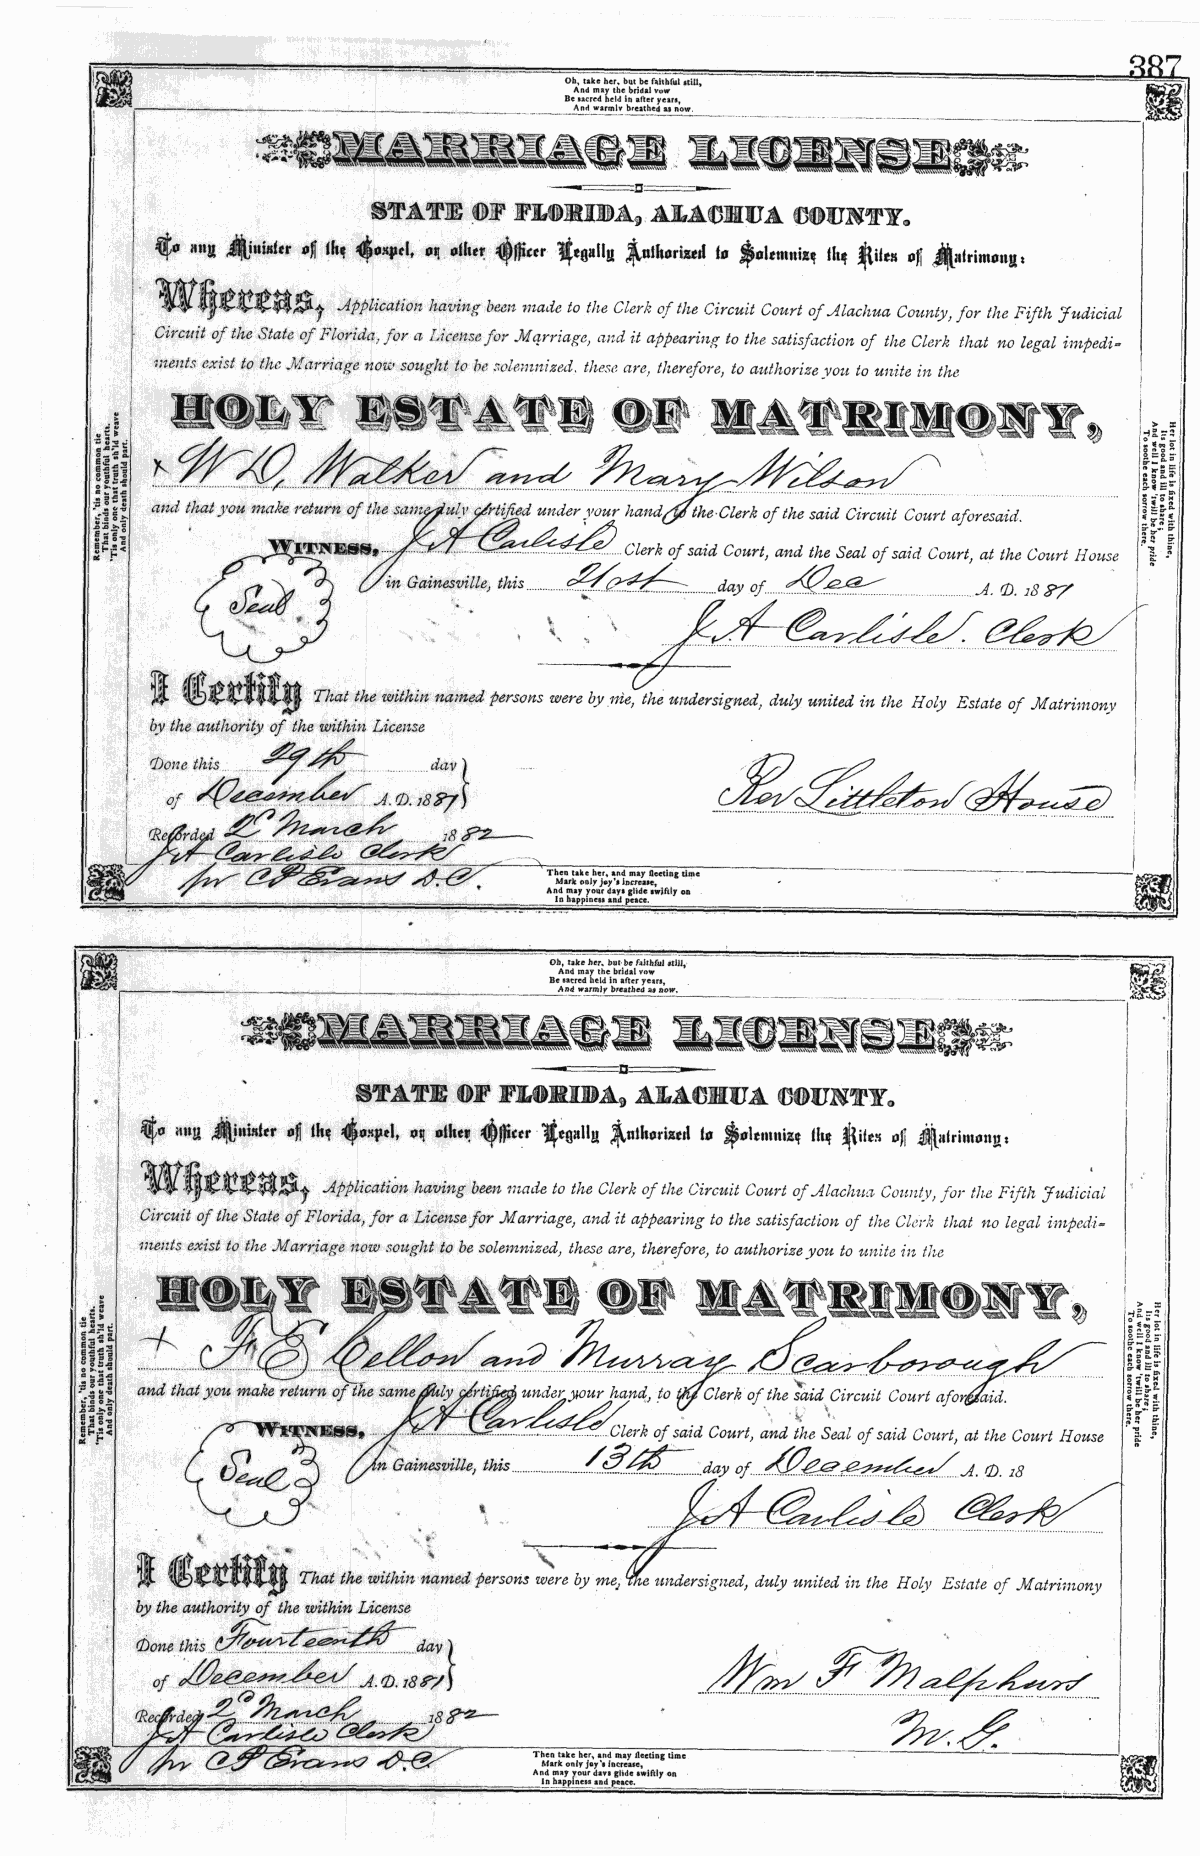 387
Oh, take her, but be faithful still,
And may the bridal vow
Be sacred held in after years,
And warmly breathed as now.
MARRIAGE LICENSE
STATE OF FLORIDA, ALACHUA COUNTY.
To any Minister of the Gospel, or other Officer Legally Authorized to Solemnize the Rites of Matrimony:
Whereas, Application having been made to the Clerk of the Circuit Court of Alachua County, for the Fifth Judicial
Circuit of the State of Florida, for a License for Marriage, and it appearing to the satisfaction of the Clerk that no legal impedi-
ments exist to the Marriage now sought to be solemnized, these are, therefore, to authorize you to unite in the
HOLY ESTATE OF MATRIMONY,
x W D, Walker and Mary Wilson
and that you make return of the same duly certified under your hand, to the Clerk of the said Circuit Court aforesaid.
WITNESS, J A Carlisle Clerk of said Court, and the Seal of said Court, at the Court House
Seal
in Gainesville, this 21st day of Dec A. D. 1881
J. A Carlisle. Clerk
I Certify That the within named persons were by me, the undersigned, duly united in the Holy Estate of Matrimony
by the authority of the within License
Done this 29th day
of December A. D. 1881
Rev Littleton House
Recorded 2d March 1882
J A Carlisle Clerk
pr C P Evans D. C.
Remember, 'tis no common tie
That binds our youthful hearts,
'Tis only one that truth sh'ld weave
And only death should part.
Her lot in life is fixed with thine,
Its good and ill to share;
And well I know 'twill be her pride
To soothe each sorrow there.
Then take her, and may fleeting time
Mark only joy's increase,
And may your days glide swiftly on
In happiness and peace.
Oh, take her, but be faithful still,
And may the bridal vow
Be sacred held in after years,
And warmly breathed as now.
MARRIAGE LICENSE
STATE OF FLORIDA, ALACHUA COUNTY.
To any Minister of the Gospel, or other Officer Legally Authorized to Solemnize the Rites of Matrimony:
Whereas, Application having been made to the Clerk of the Circuit Court of Alachua County, for the Fifth Judicial
Circuit of the State of Florida, for a License for Marriage, and it appearing to the satisfaction of the Clerk that no legal impedi-
ments exist to the Marriage now sought to be solemnized, these are, therefore, to authorize you to unite in the
HOLY ESTATE OF MATRIMONY,
x F E Cellon and Murray Scarborough
and that you make return of the same duly certified under your hand, to the Clerk of the said Circuit Court aforesaid.
WITNESS, J A Carlisle Clerk of said Court, and the Seal of said Court, at the Court House
Seal
in Gainesville, this 13th day of December A. D. 18
J A Carlisle Clerk
I Certify That the within named persons were by me, the undersigned, duly united in the Holy Estate of Matrimony
by the authority of the within License
Done this Fourteenth day
of December A. D. 1881
Wm F Malphurs
M. G.
Recorded 2d March 1882
J A Carlisle Clerk
pr C P Evans D. C.
Remember, 'tis no common tie
That binds our youthful hearts,
'Tis only one that truth sh'ld weave
And only death should part.
Her lot in life is fixed with thine,
Its good and ill to share;
And well I know 'twill be her pride
To soothe each sorrow there.
Then take her, and may fleeting time
Mark only joy's increase,
And may your days glide swiftly on
In happiness and peace.